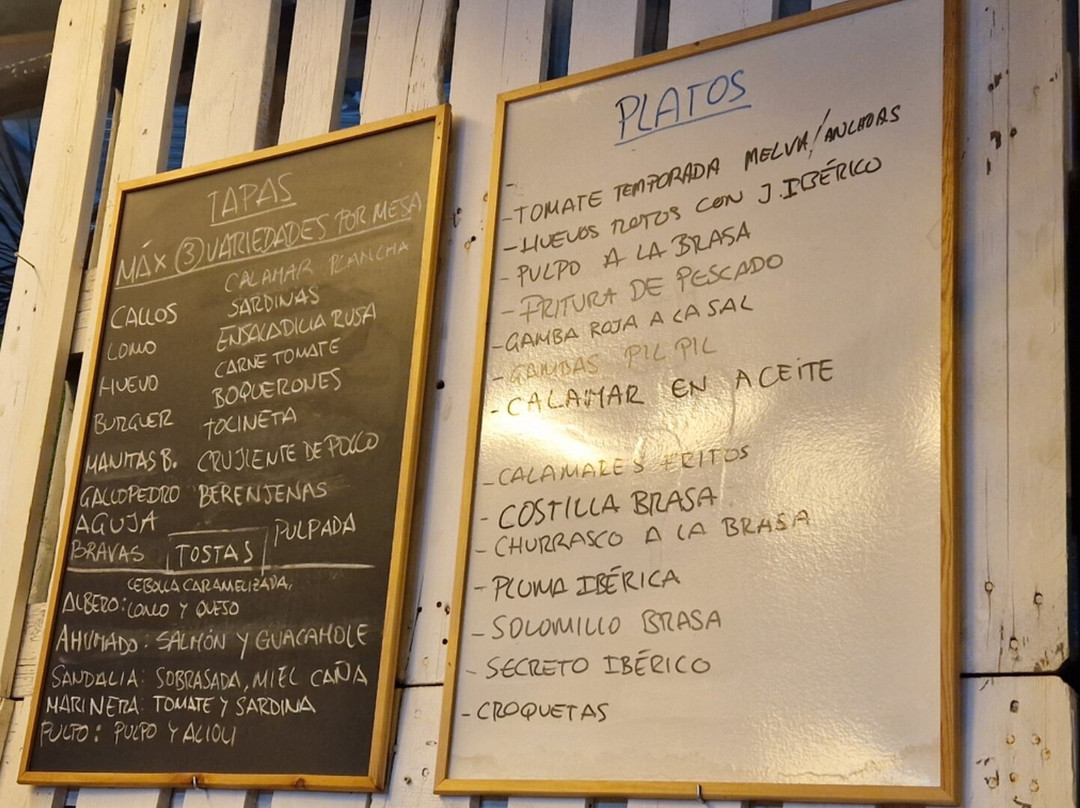 TAPAS
MÁX ③ VARIEDADES POR MESA
CALAMAR PLANCHA
CALLOS SARDINAS
LOMO ENSALADILLA RUSA
HUEVO CARNE TOMATE
BURGUER BOQUERONES
TOCINETA
MANITAS B. CRUJIENTE DE POLLO
GALLOPEDRO BERENJENAS
AGUJA PULPADA
BRAVAS TOSTAS
CEBOLLA CARAMELIZADA,
ALBERO: LOMO Y QUESO
AHUMADO: SALMÓN Y GUACAMOLE
SANDALIA: SOBRASADA, MIEL CAÑA
MARINERA: TOMATE Y SARDINA
PULPO: PULPO Y ALIOLI
PLATOS
-
-TOMATE TEMPORADA MELVA/ANCHOAS
-HUEVOS ROTOS CON J. IBÉRICO
-PULPO A LA BRASA
-FRITURA DE PESCADO
-GAMBA ROJA A LA SAL
-GAMBAS PIL PIL
-CALAMAR EN ACEITE
-CALAMARES FRITOS
-COSTILLA BRASA
-CHURRASCO A LA BRASA
-PLUMA IBÉRICA
-SOLOMILLO BRASA
-SECRETO IBÉRICO
-CROQUETAS